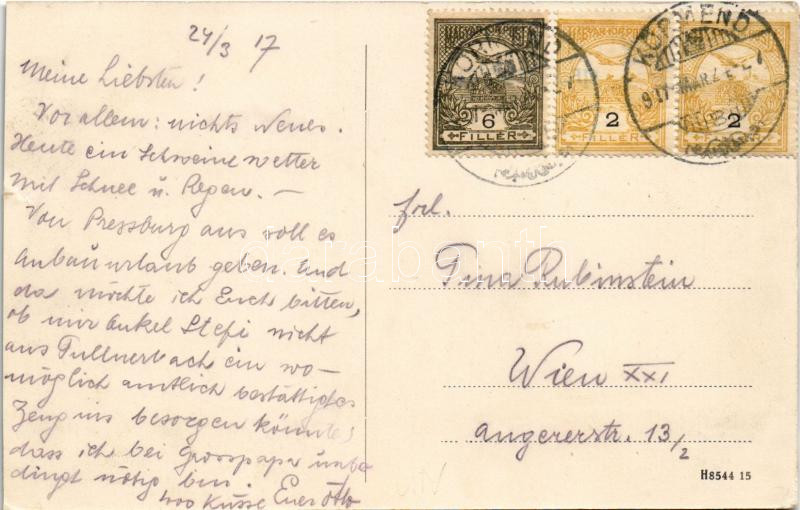 24/3 17
Meine Liebsten!
Vor allem: nichts Neues.
Heute ein Schweinewetter
mit Schnee u. Regen. —
Von Pressburg aus soll es
Anbauurlaub geben. Und
da möchte ich Euch bitten,
ob mir Onkel Stefi nicht
aus Tullnerbach ein wo-
möglich amtlich bestättigtes
Zeugnis besorgen könnte,
dass ich bei Grosspapa unbe
dingt nötig bin.
400 Küsse Euer Otto
MAGYAR KIR. POSTA
6
FILLÉR
2
FILLÉR
2
KÖRMEND
KÖRMEND
917 MÁR
Frl.
Tina Rubinstein
Wien XXI
Angererstr. 13/2
H8544 15
darabanth